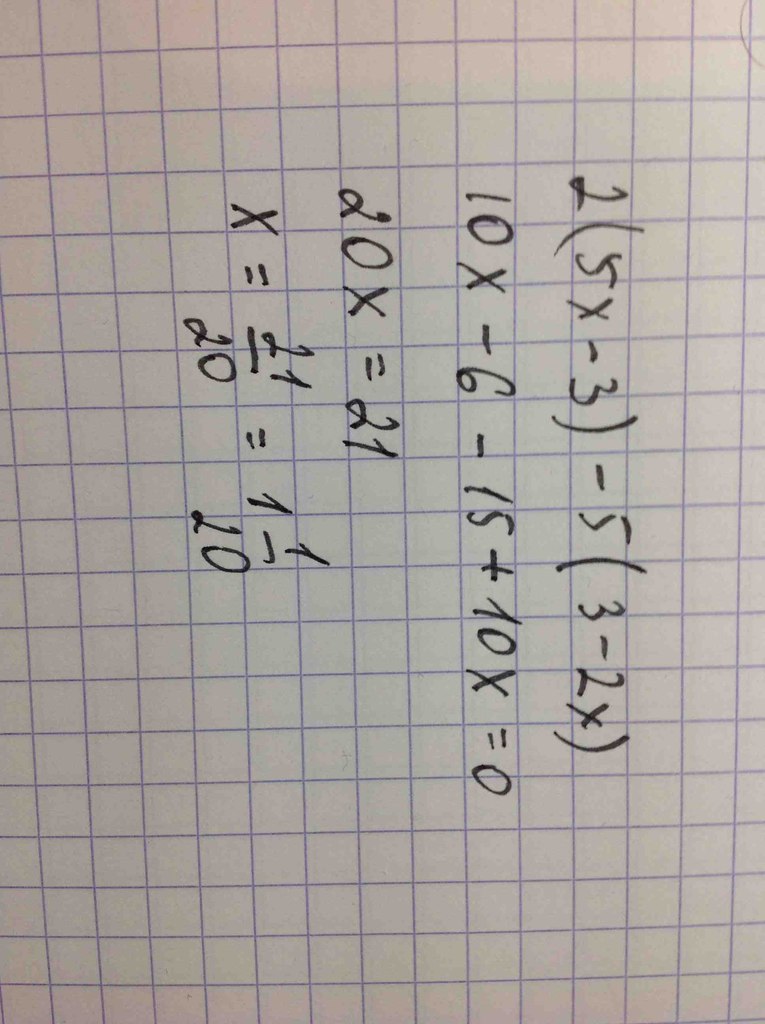 2(5x-3)-5(3-2x)
10x-6-15+10x=0
20x=21
x=21/20=1 1/20